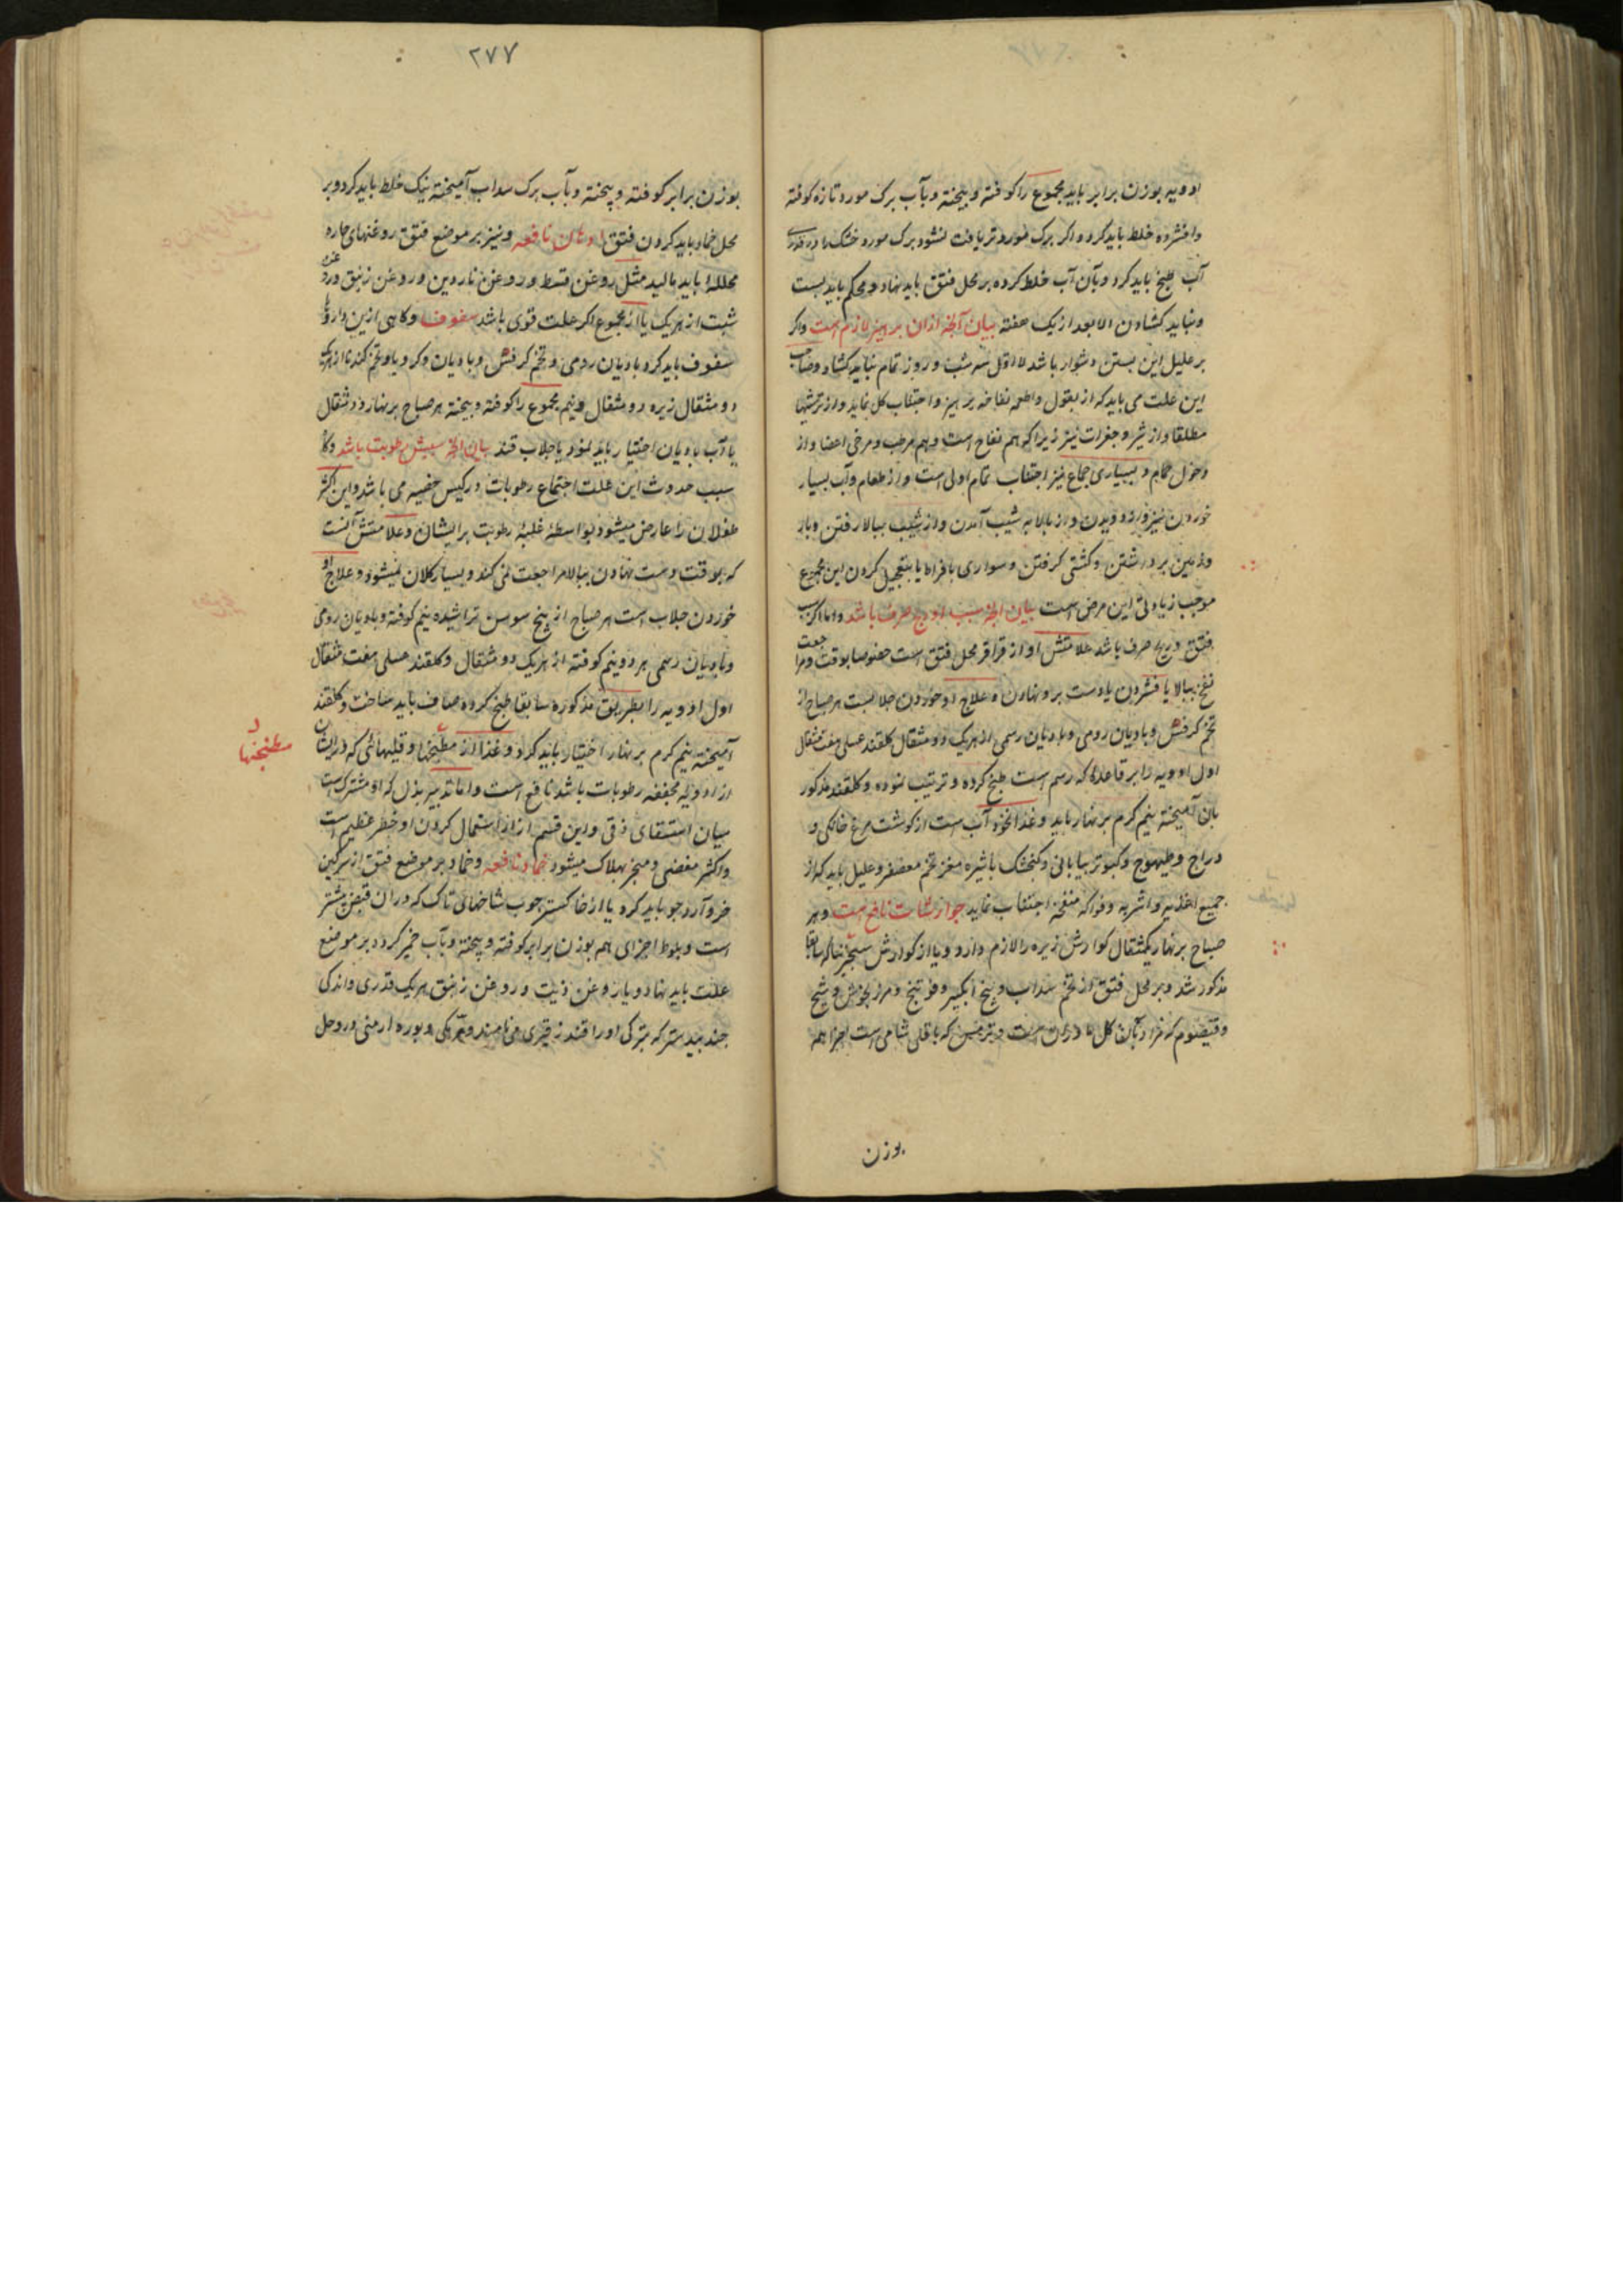 ادویه بوزن برابر باید مجموع را کوفته و بیخته و بآب برک مورد تازه کوفته
وافشرده خلط باید کرد و اکر برک مورد تر یافت نشود برک مورد خشک را در قدری
آب طبخ باید کرد و بآن آب خلط کرده بر محل فتق باید نهاد و محکم باید بست
و نباید کشادن الا بعد از یک هفته بیان آنچه ازان پرهیز لازم است واکر
بر علیل این بستن دشوار باشد لا اقل سه شب و روز تمام نباید کشاد و صاحب
این علت می باید که از بقول و اطعمه نفاخه پرهیز و اجتناب کل نماید و از ترشیها
مطلقا و از شیر و جغرات نیز زیرا که هم نفاخ است و هم مرطب و مرخی اعضا و از
دخول حمام و بسیاری جماع نیز اجتناب تمام اولی است و از طعام و آب بسیار
خوردن نیز و از دویدن و از بالا به شیب آمدن و از شیب ببالا رفتن و بار
و زمین برداشتن و کشتی کرفتن و سواری بافراط یا بتعجیل کردن این مجموع
موجب زیادتی این مرض است بیان آنچه سبب او ریح صرف باشد و اما اکر سبب
فتق ریح صرف باشد علامتش آواز قراقر محل فتق است خصوصا بوقت مراجعت
نفخ ببالا یا فشردن یا دست برو نهادن و علاج او خوردن جلابست هر صباح از
تخم کرفس و بادیان رومی و بادیان رسمی از هریک دو مثقال کلقند عسلی هفت مثقال
اول ادویه را بر قاعده که رسم است طبخ کرده و ترتیب نموده و کلقند مذکور
بآن آمیخته نیم کرم بر نهار باید و غذا نخود آب است از کوشت مرغ خانکی و
دراج و طیهوج و کبوتر بیابانی و کنجشک با شیره مغز تخم معصفر و علیل باید که از
جمیع اغذیه و اشربه و فواکه منفخه اجتناب نماید جوارشات نافع است و هر
صباح بر نهار یکمثقال کوارش زیره را لازم دارد و یا از کوارش سنجرنیا که سابقا
مذکور شد و بر محل فتق از تخم سداب و بیخ انکبیر و فوتنج و مرزنجوش و شیح
و قیصوم که مراد بآنها کل درمان است و ترمس که باقلی شامی است اجزا هم
بوزن
۲۷۷
بوزن برابر کوفته و بیخته و بآب برک سداب آمیخته نیک خلط باید کرد و بر
محل ضماد باید کردن فتق ادهان نافعه و نیز بر موضع فتق روغنهای حاره
محلله باید مالید مثل روغن قسط و روغن ناردین و روغن زنبق و روغن
شبت از هریک یا از مجموع اکر علت قوی باشد سفوف و کاهی ازین داروها
سفوف باید کرد بادیان رومی و تخم کرفس و بادیان و کرویا و تخم کندنا از هریک
دو مثقال زیره دو مثقال و نیم مجموع را کوفته و بیخته هر صباح بر نهار دو مثقال
با آب بادیان اختیار باید نمود یا جلاب قند بیان آنچه سببش رطوبت باشد و کاه
سبب حدوث این علت اجتماع رطوبات در کیس خصیه می باشد و این اکثر
طفلان را عارض میشود بواسطهٔ غلبهٔ رطوبت بر ایشان و علامتش آنست
که بوقت دست نهادن ببالا مراجعت نمی کند و بسیار کلان نمیشود و علاج او
خوردن جلاب است هر صباح از بیخ سوس تراشیده نیم کوفته و بادیان رومی
و بادیان رسمی هر دو نیم کوفته از هریک دو مثقال و کلقند عسلی هفت مثقال
اول ادویه را بطریق مذکوره سابقا طبخ کرده صاف باید ساخت و کلقند
آمیخته نیم کرم بر نهار اختیار باید کرد و غذا از مطنجنها و قلیهائی که در ایشان
از ادویه مجففه رطوبات باشد نافع است و اما تدبیر بذل که او مشترکست
بیان استسقای زقی و این قسم از ازار استعمال کردن او خطر عظیم است
و اکثر مفضی و منجر بهلاک میشود ضماد نافعه و ضماد بر موضع فتق از سرکین
خر و آرد جو باید کرد یا از خاکستر چوب شاخهای تاک که در ان قبض بیشتر
است و بلوط اجزای هم بوزن برابر کوفته و بیخته و بآب خمیر کرده بر موضع
علت باید نهاد و یا روغن زیت و روغن زنبق هریک قدری و اندکی
جند بیدستر که بترکی او را قندز قیری می نامند و نمک و بوره ارمنی درو حل
مطنجنها